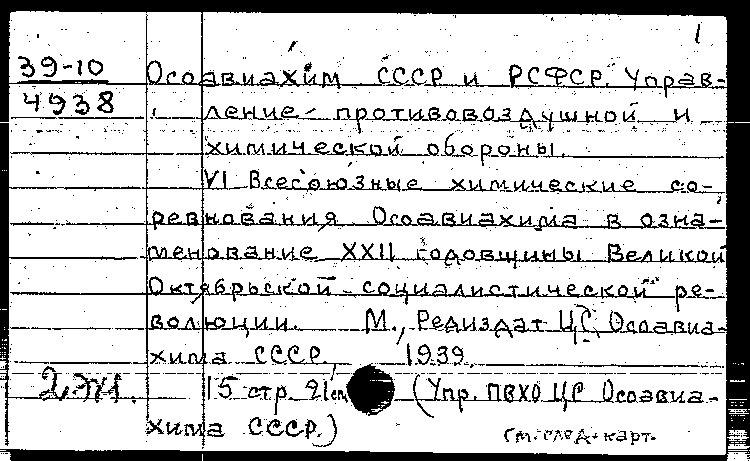 1
39-10 Осоавиахим СССР и РСФСР. Управ-
4938 ление противовоздушной и
химической обороны.
VI Всесоюзные химические со-
ревнования Осоавиахима в озна-
менование XXII годовщины Великой
Октябрьской социалистической ре-
волюции. М., Редиздат ЦС Осоавиа-
хима СССР, 1939.
2 эк. 15 стр. 21см (Упр. ПВХО ЦС Осоавиа-
хима СССР.)
См. след. карт.